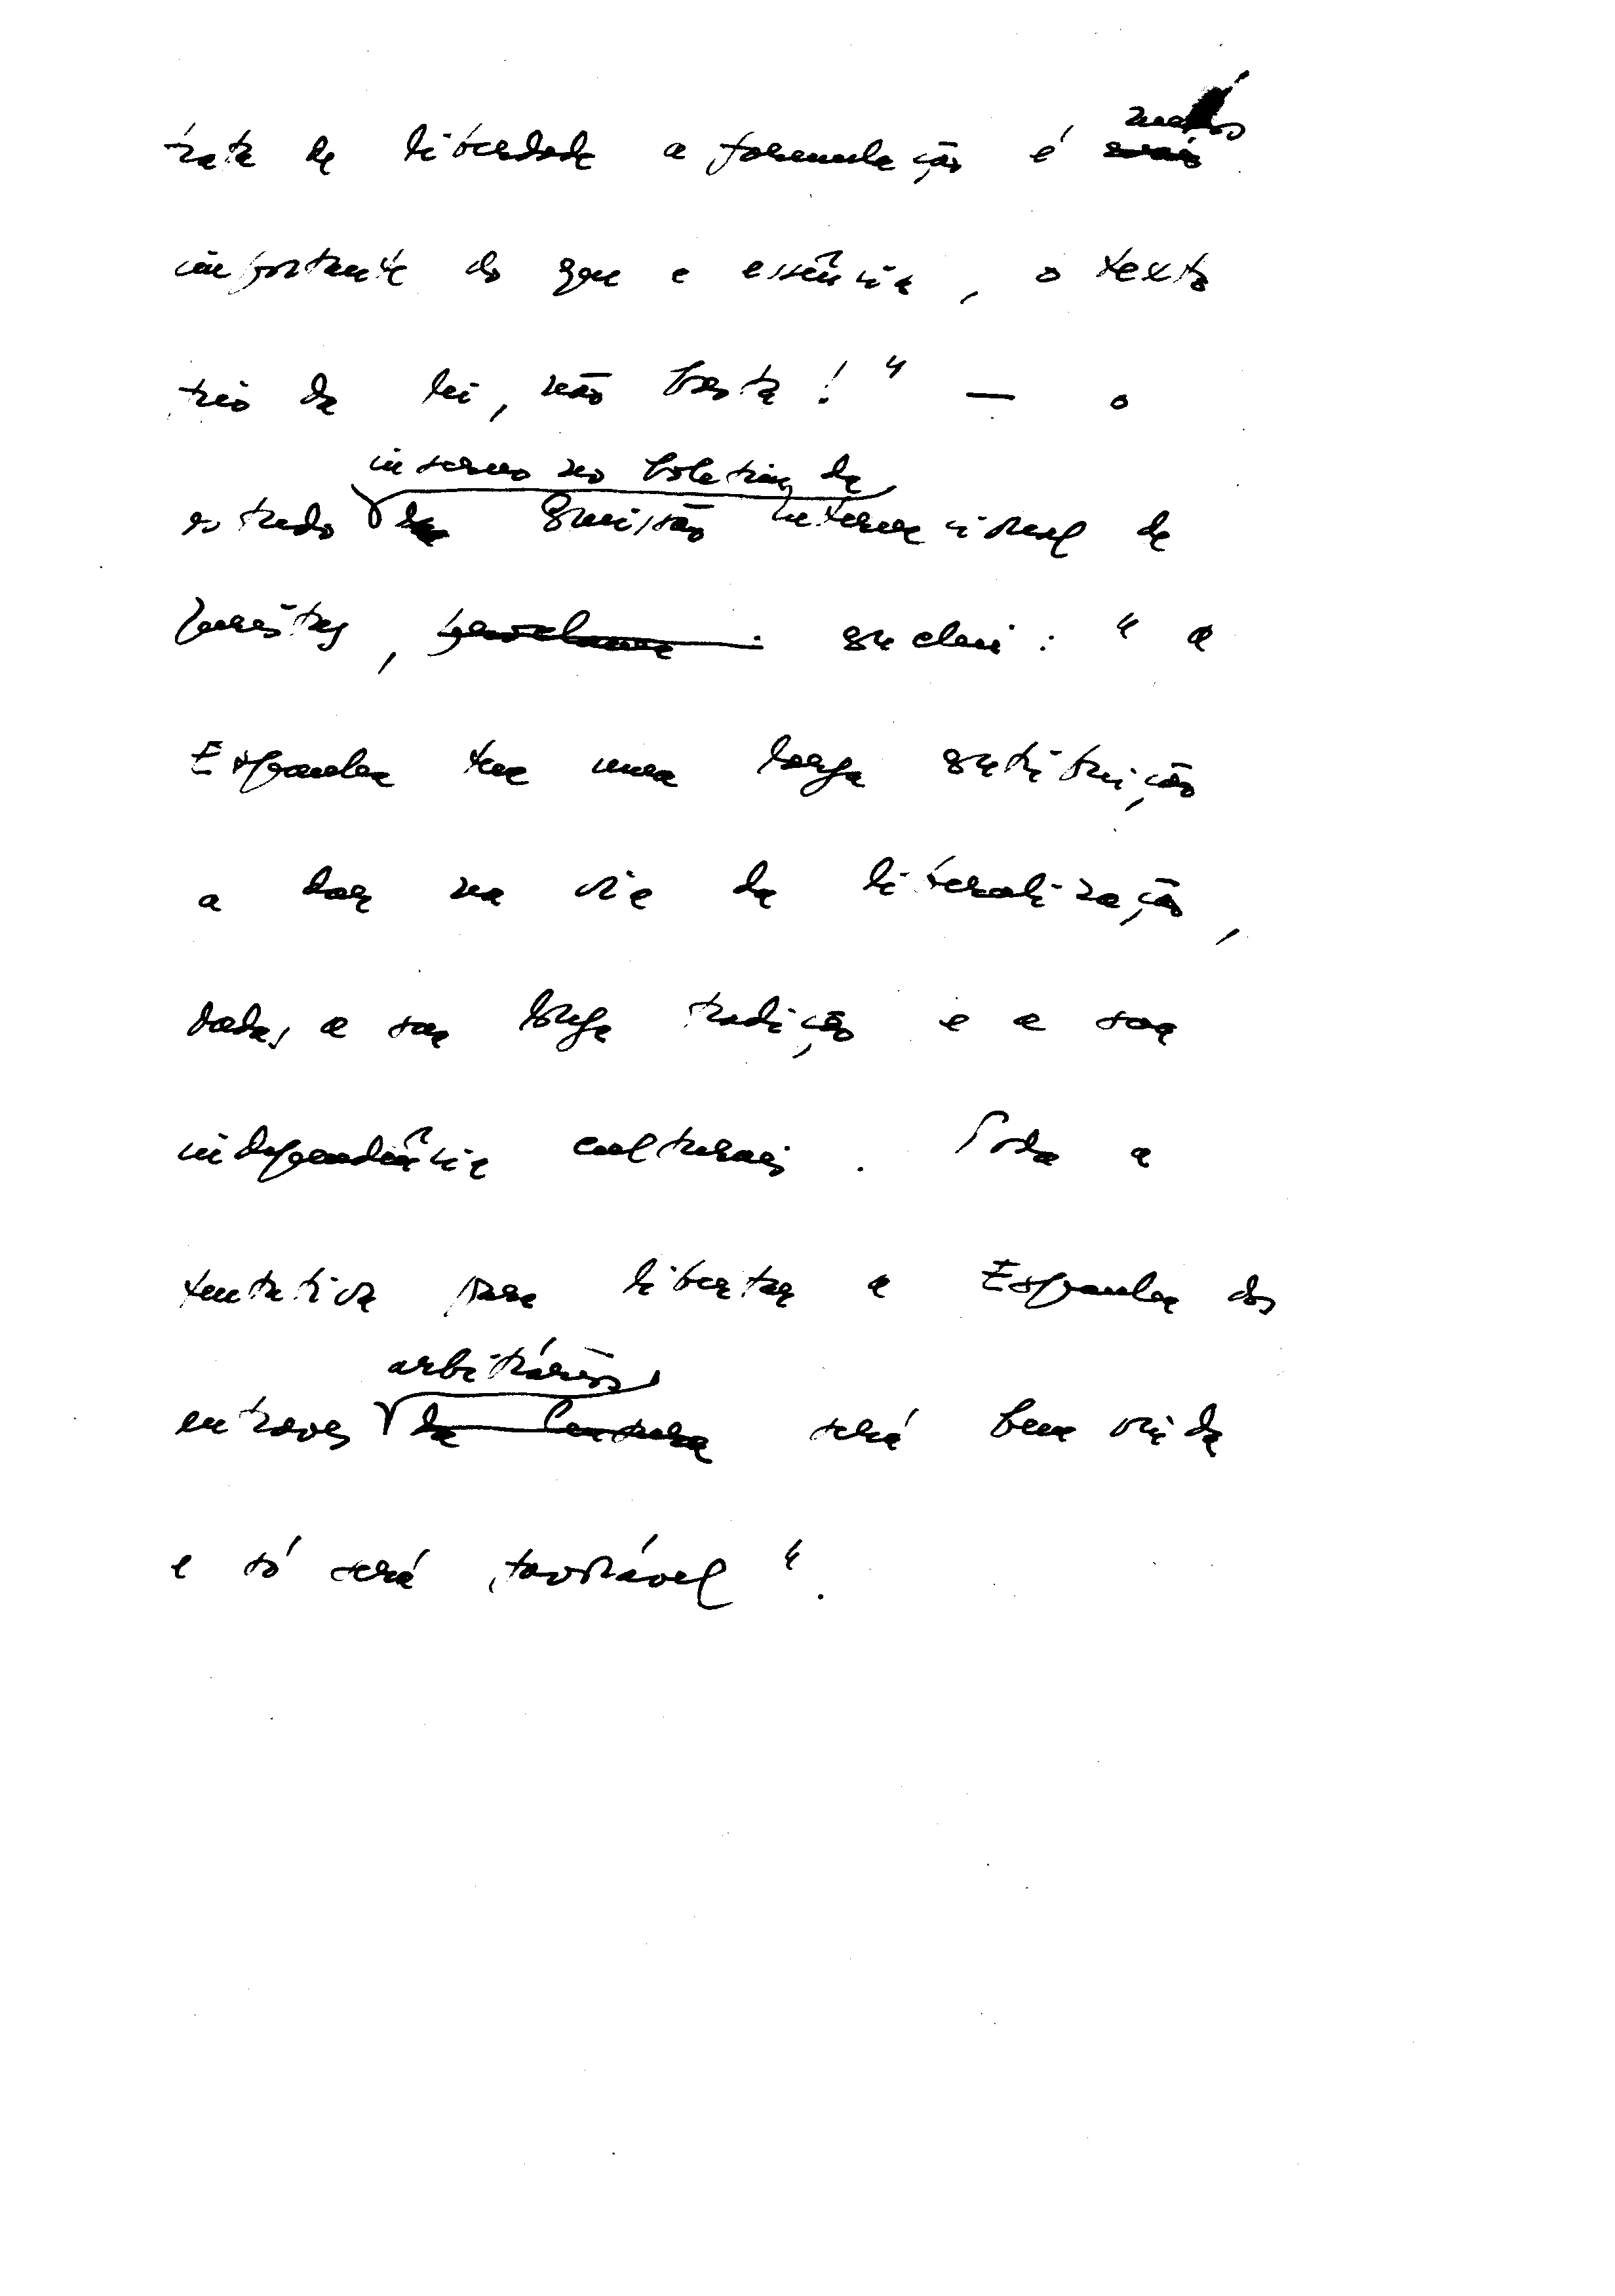 trata de liberdade a formulação é menos
importante do que a essência, o texto
frio da lei, não basta!" — o
inserido no boletim da
estudo da Comissão Internacional de
Juristas, conclui: "a
Espanha tem uma larga contribuição
a dar na via da liberalização,
dadas a sua longa tradição e a sua
independência culturais. Toda a
tentativa para libertar a Espanha dos
arbitrários
entraves da Censura será bem vinda
e só será favorável".